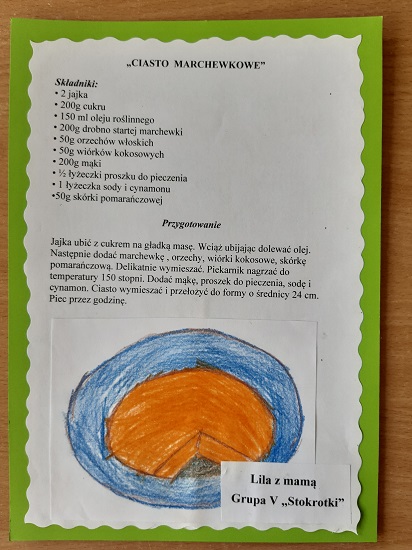 „CIASTO MARCHEWKOWE”
Składniki:
• 2 jajka
• 200g cukru
• 150 ml oleju roślinnego
• 200g drobno startej marchewki
• 50g orzechów włoskich
• 50g wiórków kokosowych
• 200g mąki
• ½ łyżeczki proszku do pieczenia
• 1 łyżeczka sody i cynamonu
•50g skórki pomarańczowej
Przygotowanie
Jajka ubić z cukrem na gładką masę. Wciąż ubijając dolewać olej.
Następnie dodać marchewkę , orzechy, wiórki kokosowe, skórkę
pomarańczową. Delikatnie wymieszać. Piekarnik nagrzać do
temperatury 150 stopni. Dodać mąkę, proszek do pieczenia, sodę i
cynamon. Ciasto wymieszać i przełożyć do formy o średnicy 24 cm.
Piec przez godzinę.
Lila z mamą
Grupa V „Stokrotki”